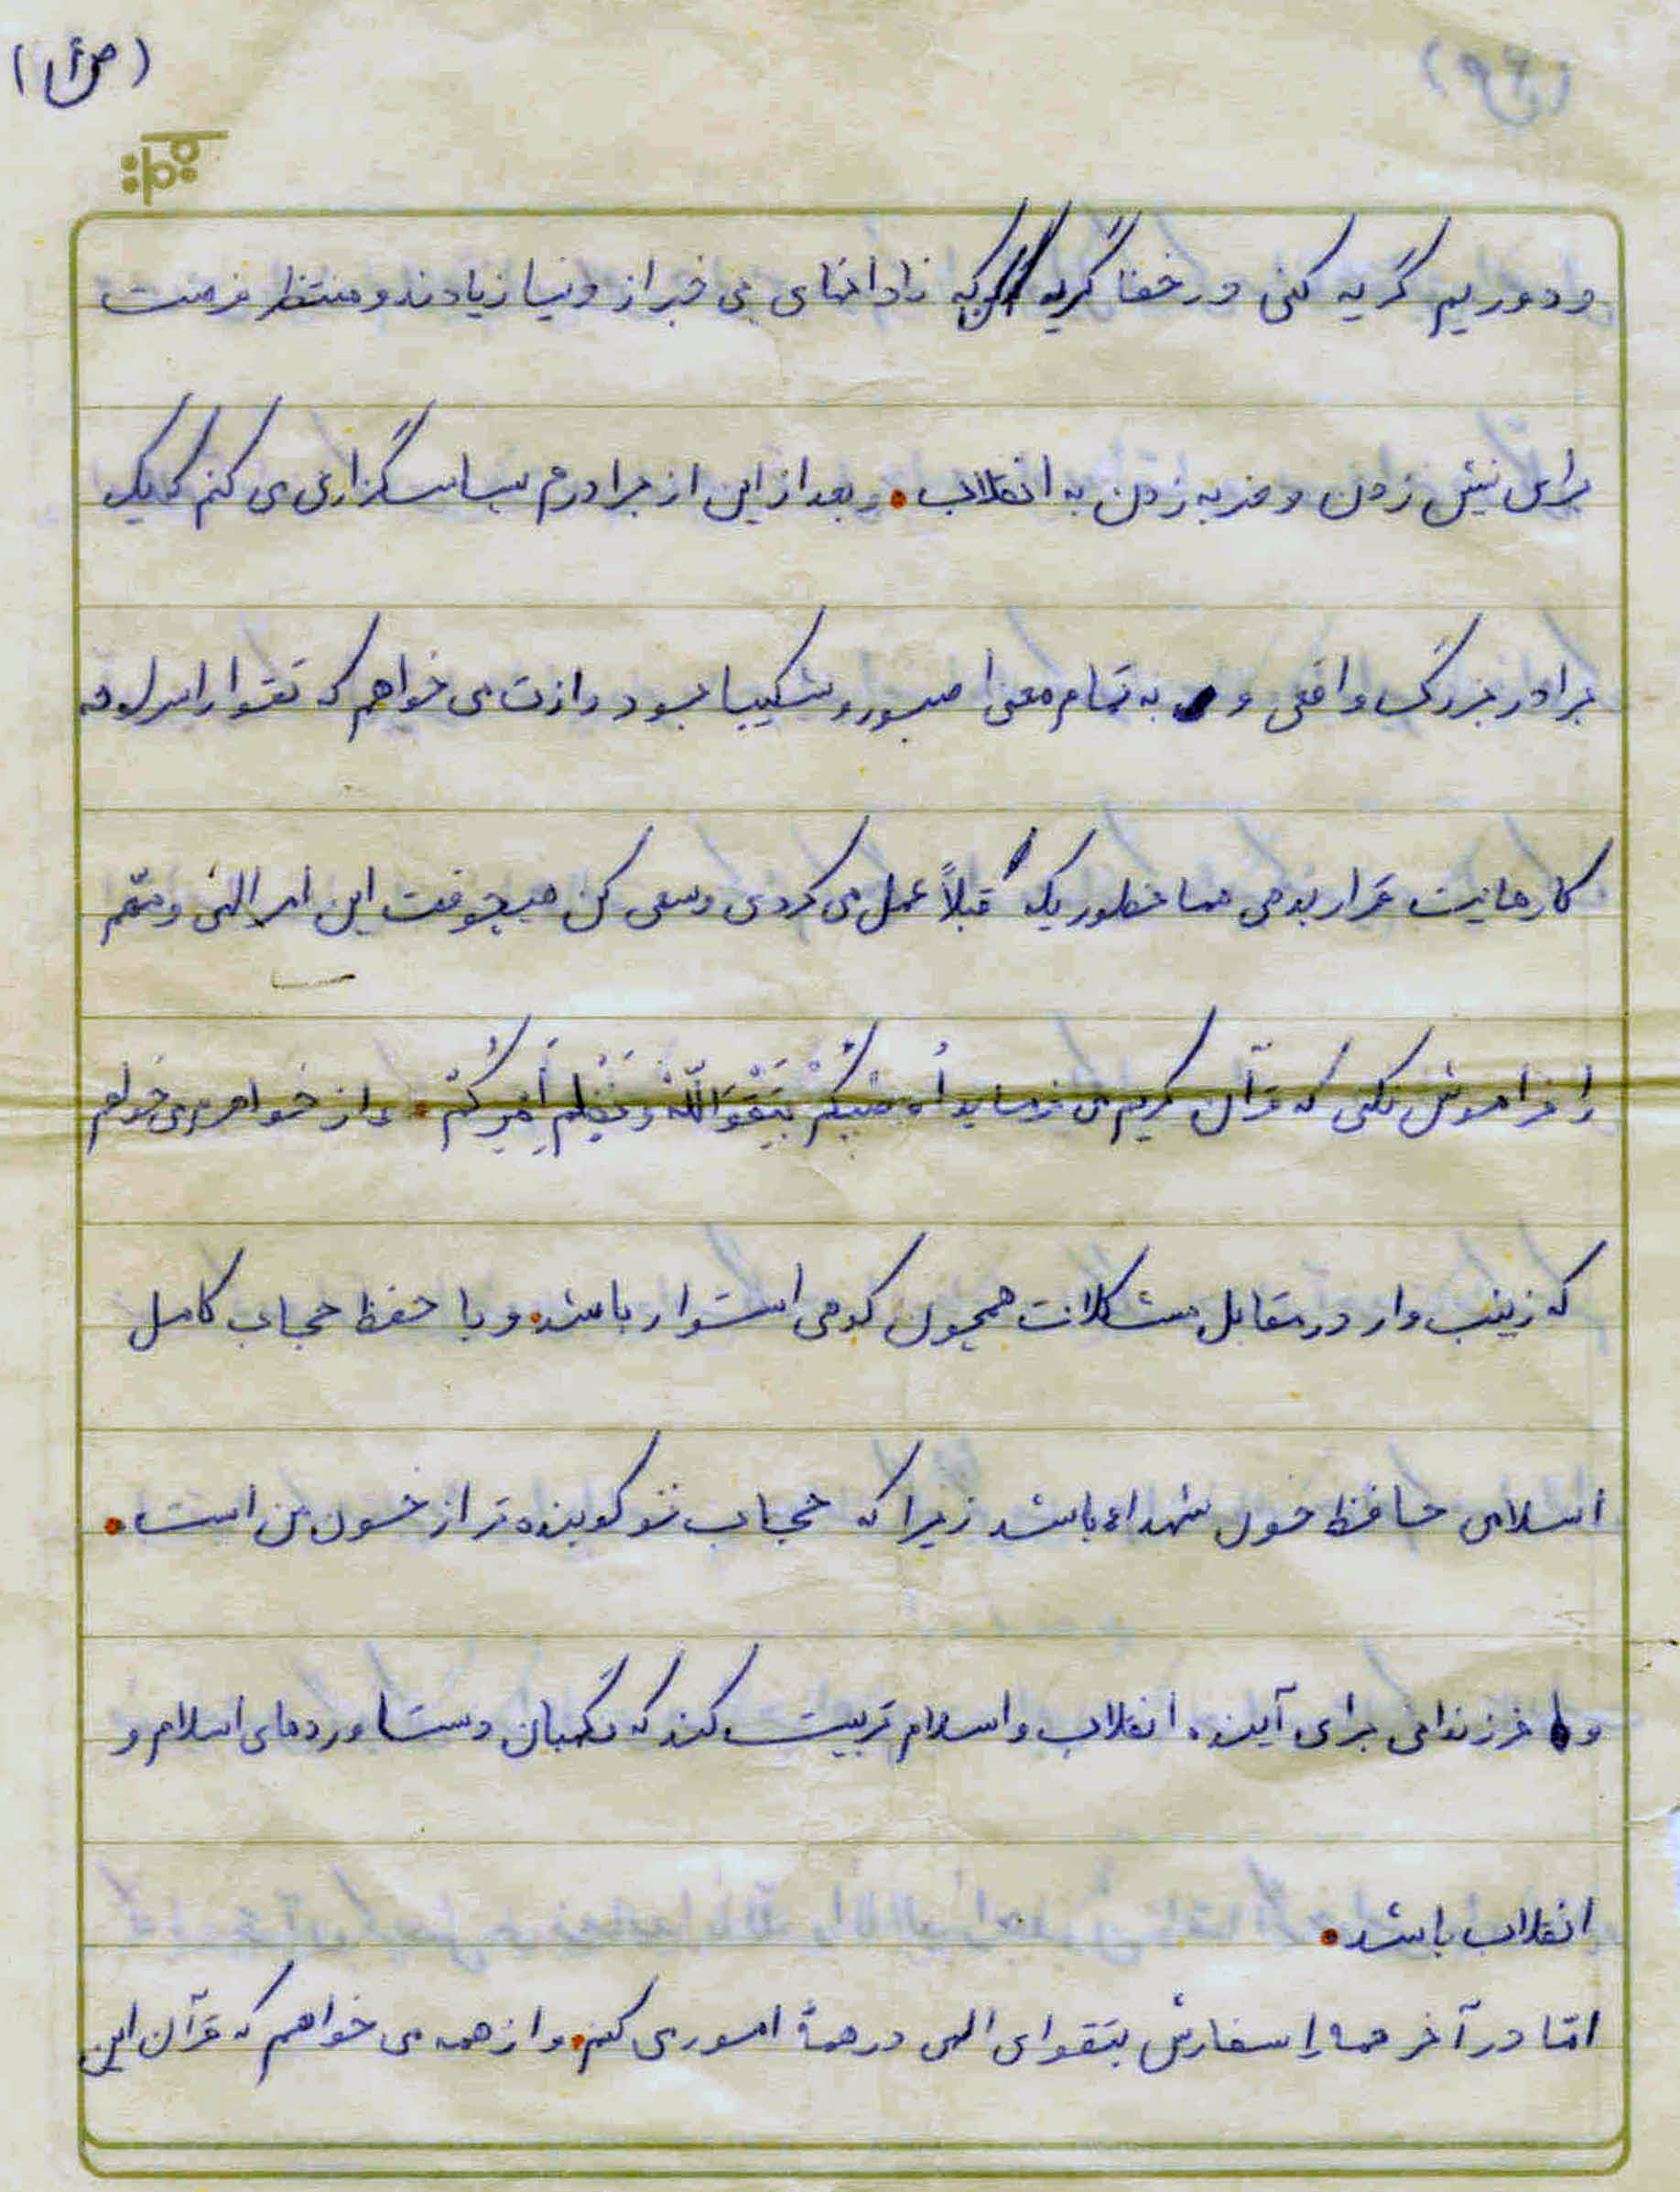 (ص ۸)
بسمه تعالی
و دوریم گریه کنی در خفا گریه کن که نادانهای بی خبر از دنیا زیادند و منتظر فرصت
برای نیش زدن و ضربه زدن به انقلاب. و بعد از این از برادرم سپاسگزاری می کنم که یک
برادر بزرگ واقعی و به تمام معنا صبور و شکیبا بود و ازت می خواهم که تقوا را سرلوحه
کارهایت قرار بدهی همانطوریکه قبلاً عمل می کردی و سعی کن هیچوقت این امر الهی و مهم
را فراموش نکنی که قرآن کریم می فرماید اُوصیکُمْ بِتَقْوَاللّهْ وَ نَظْمِ اَمْرِکُمْ. و از خواهرم می خواهم
که زینب وار در مقابل مشکلات همچون کوهی استوار باشد. و با حفظ حجاب کامل
اسلامی حافظ خون شهداء باشد زیرا که حجاب تو کوبنده تر از خون من است.
و فرزندانی برای آینده انقلاب و اسلام تربیت کند که نگهبان دستاوردهای اسلام و
انقلاب باشد.
امّا در آخر همه را سفارش بتقوای الهی در همهٔ امور می کنم. و از همه می خواهم که قرآن این